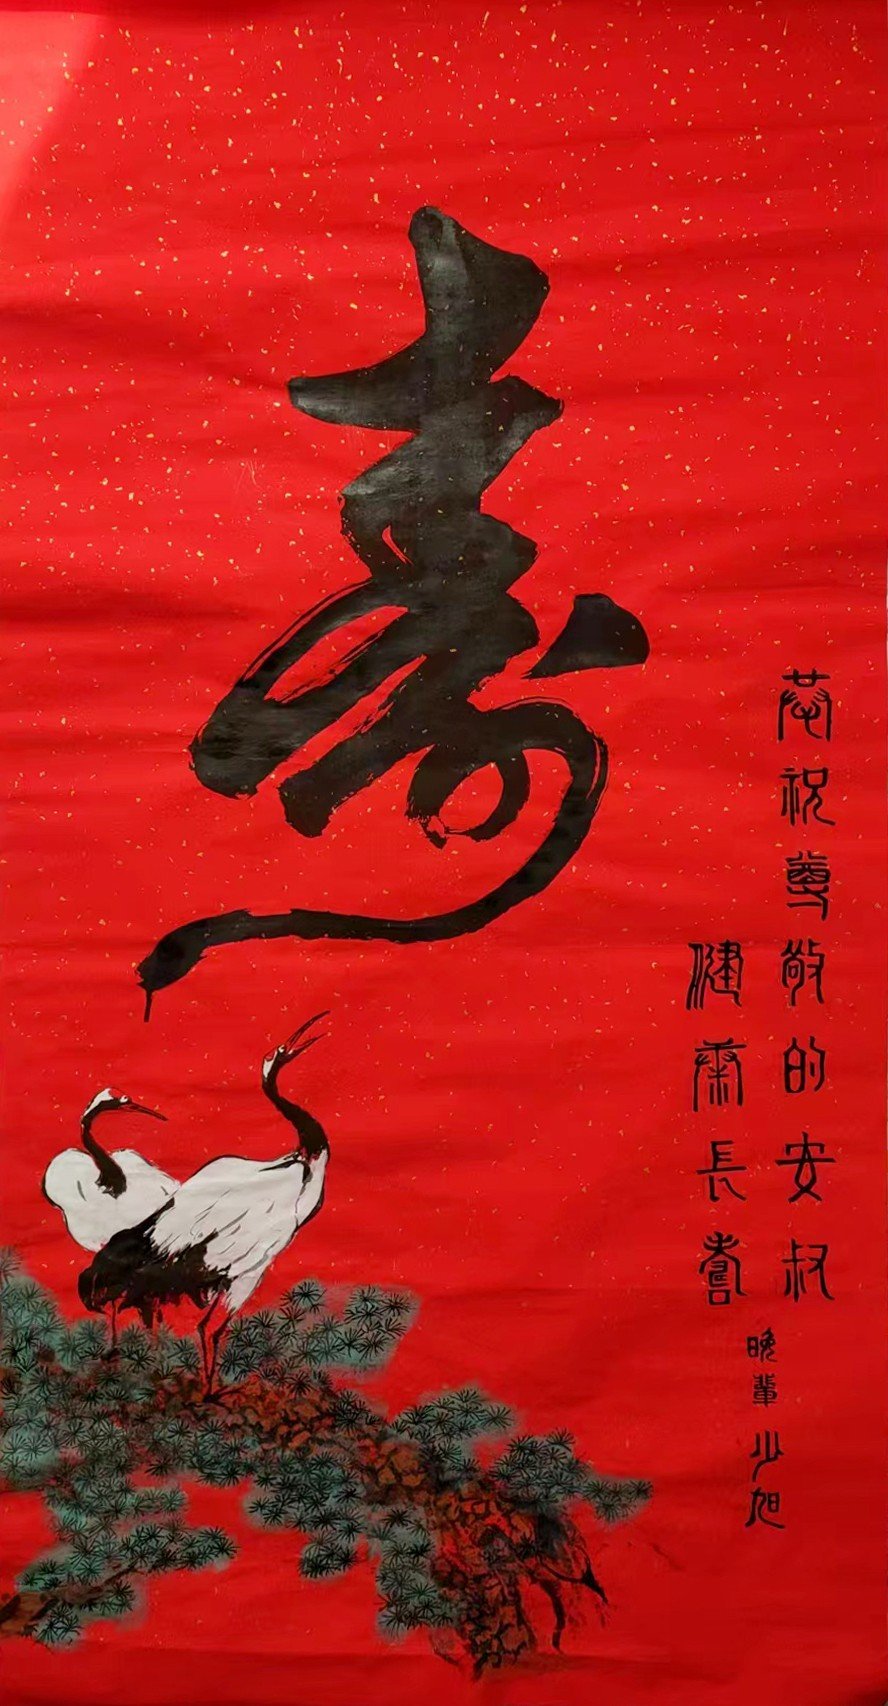 壽
恭祝尊敬的安叔
健康長壽
晚輩少旭